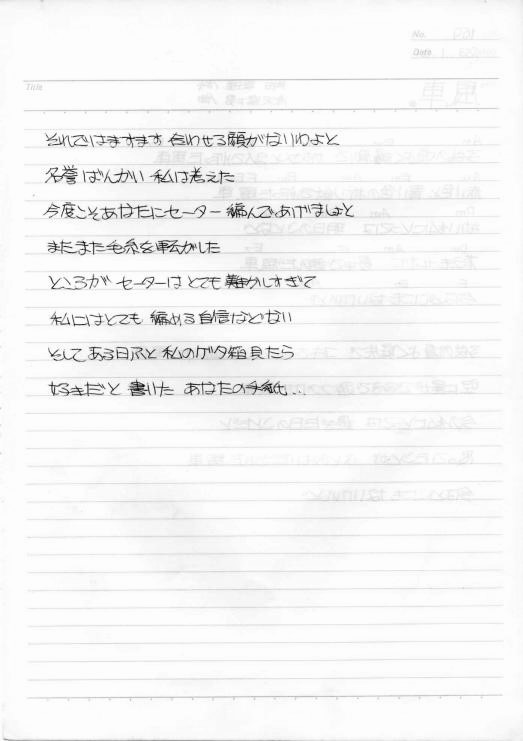 No.
Date
Title
それではますます 合わせる顔がないわよと
名誉ばんかい 私は考えた
今度こそあなたにセーター 編んであげましょと
またまた毛糸を転がした
ところが セーターは とても 難かしすぎて
私にはとても 編める自信などない
そして ある日ふと 私のゲタ箱見たら
好きだと 書いた あなたの手紙...